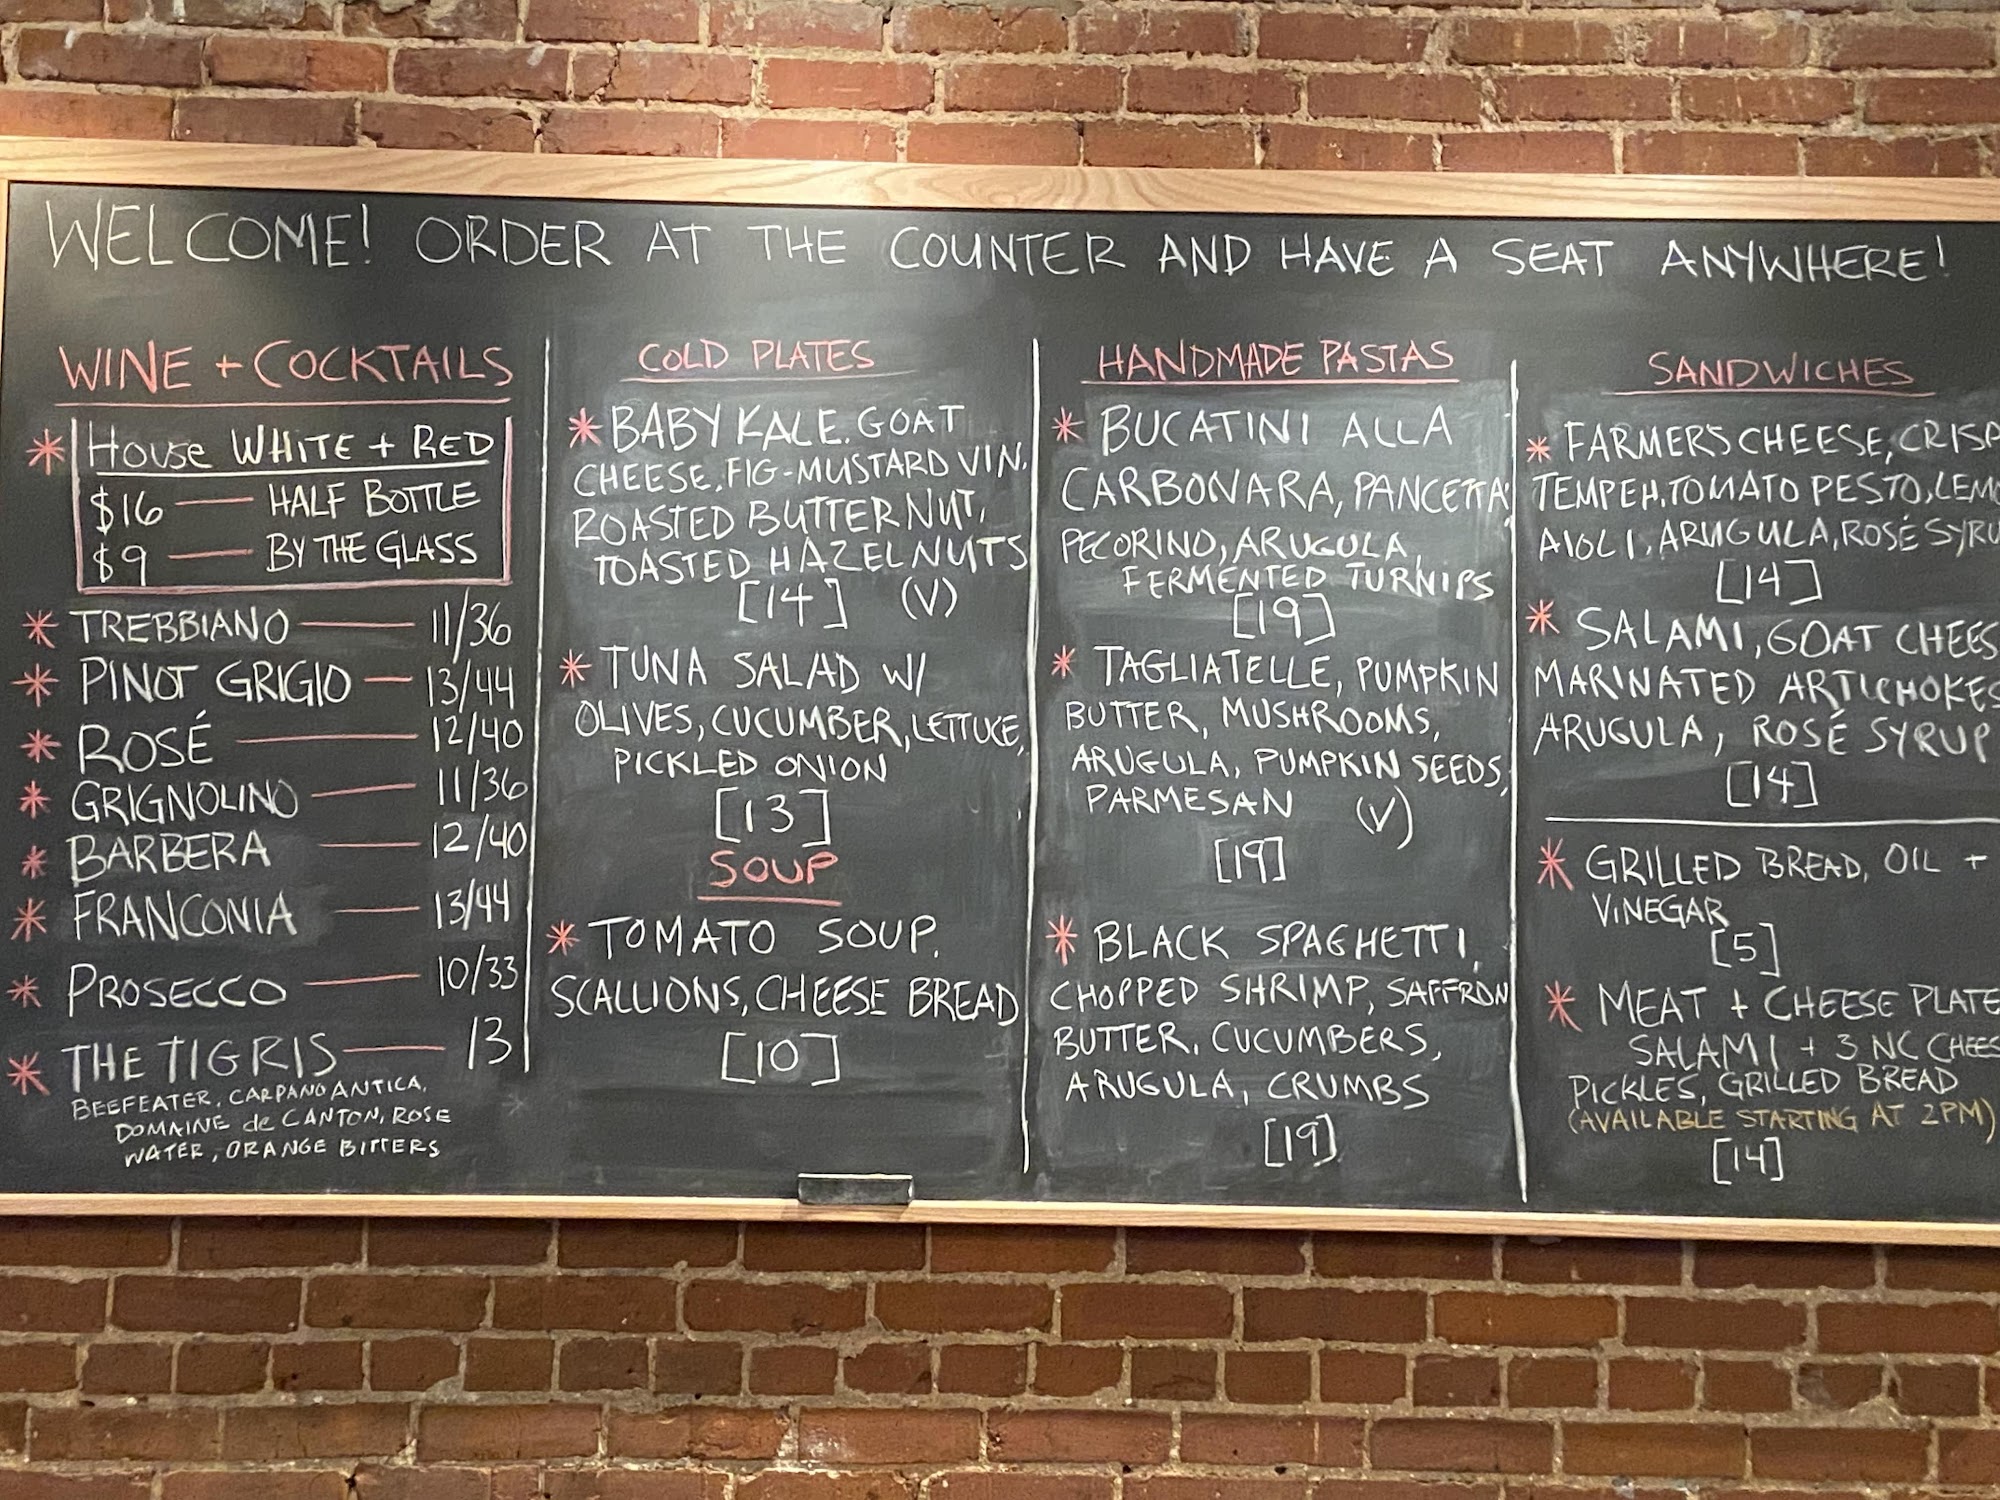 WELCOME! ORDER AT THE COUNTER AND HAVE A SEAT ANYWHERE!
WINE + COCKTAILS
* HOUSE WHITE + RED
$16 — HALF BOTTLE
$9 — BY THE GLASS
* TREBBIANO — 11/36
* PINOT GRIGIO — 13/44
* ROSÉ — 12/40
* GRIGNOLINO — 11/36
* BARBERA — 12/40
* FRANCONIA — 13/44
* PROSECCO — 10/33
* THE TIGRIS — 13
BEEFEATER, CARPANO ANTICA,
DOMAINE de CANTON, ROSE
WATER, ORANGE BITTERS
COLD PLATES
* BABY KALE, GOAT
CHEESE, FIG-MUSTARD VIN,
ROASTED BUTTERNUT,
TOASTED HAZELNUTS
[14] (V)
* TUNA SALAD W/
OLIVES, CUCUMBER, LETTUCE,
PICKLED ONION
[13]
SOUP
* TOMATO SOUP,
SCALLIONS, CHEESE BREAD
[10]
HANDMADE PASTAS
* BUCATINI ALLA
CARBONARA, PANCETTA,
PECORINO, ARUGULA,
FERMENTED TURNIPS
[19]
* TAGLIATELLE, PUMPKIN
BUTTER, MUSHROOMS,
ARUGULA, PUMPKIN SEEDS,
PARMESAN (V)
[19]
* BLACK SPAGHETTI,
CHOPPED SHRIMP, SAFFRON
BUTTER, CUCUMBERS,
ARUGULA, CRUMBS
[19]
SANDWICHES
* FARMER'S CHEESE, CRISP
TEMPEH, TOMATO PESTO, LEMO
AIOLI, ARUGULA, ROSÉ SYRU
[14]
* SALAMI, GOAT CHEES
MARINATED ARTICHOKES
ARUGULA, ROSÉ SYRUP
[14]
* GRILLED BREAD, OIL +
VINEGAR
[5]
* MEAT + CHEESE PLATE
SALAMI + 3 NC CHEES
PICKLES, GRILLED BREAD
(AVAILABLE STARTING AT 2PM)
[14]